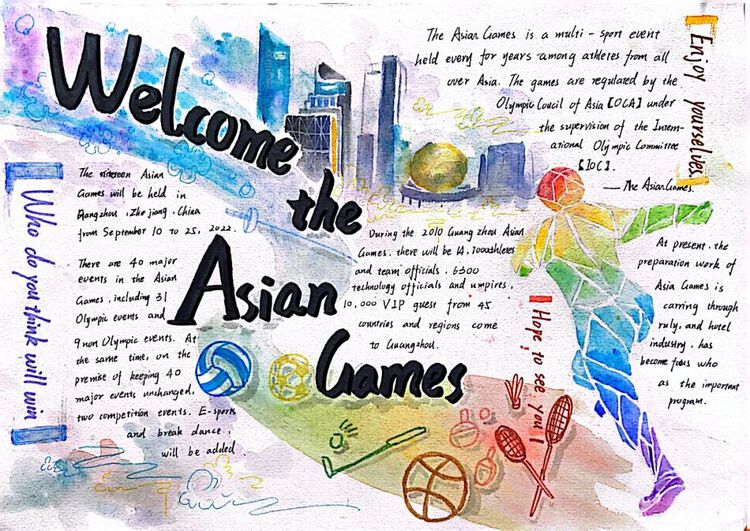 Welcome
the
Asian
Games
The Asian Games is a multi - sport event
held every for years among athletes from all
over Asia. The games are regulated by the
Olympic Coucil of Asia [OCA] under
the supervision of the Intern-
ational Olympic Committee
[IOC].
— The Asian Games.
Enjoy yourselves
Who do you think will win
The nineteen Asian
Games will be held in
Hangzhou, Zhe jiang, China
from September 10 to 25, 2022.
There are 40 major
events in the Asian
Games, including 31
Olympic events and
9 non Olympic events. At
the same time, on the
premise of keeping 40
major events unchanged,
two competition events. E-sports
and break dance,
will be added.
During the 2010 Guang zhou Asian
Games, there will be 14,700athletes
and team officials, 6300
technology officials and umpires,
10,000 VIP guest from 45
countries and regions come
to Guangzhou.
Hope to see you!
At present, the
preparation work of
Asia Games is
carring through
ruly, and hotel
industry, has
become fous who
as the important
program.